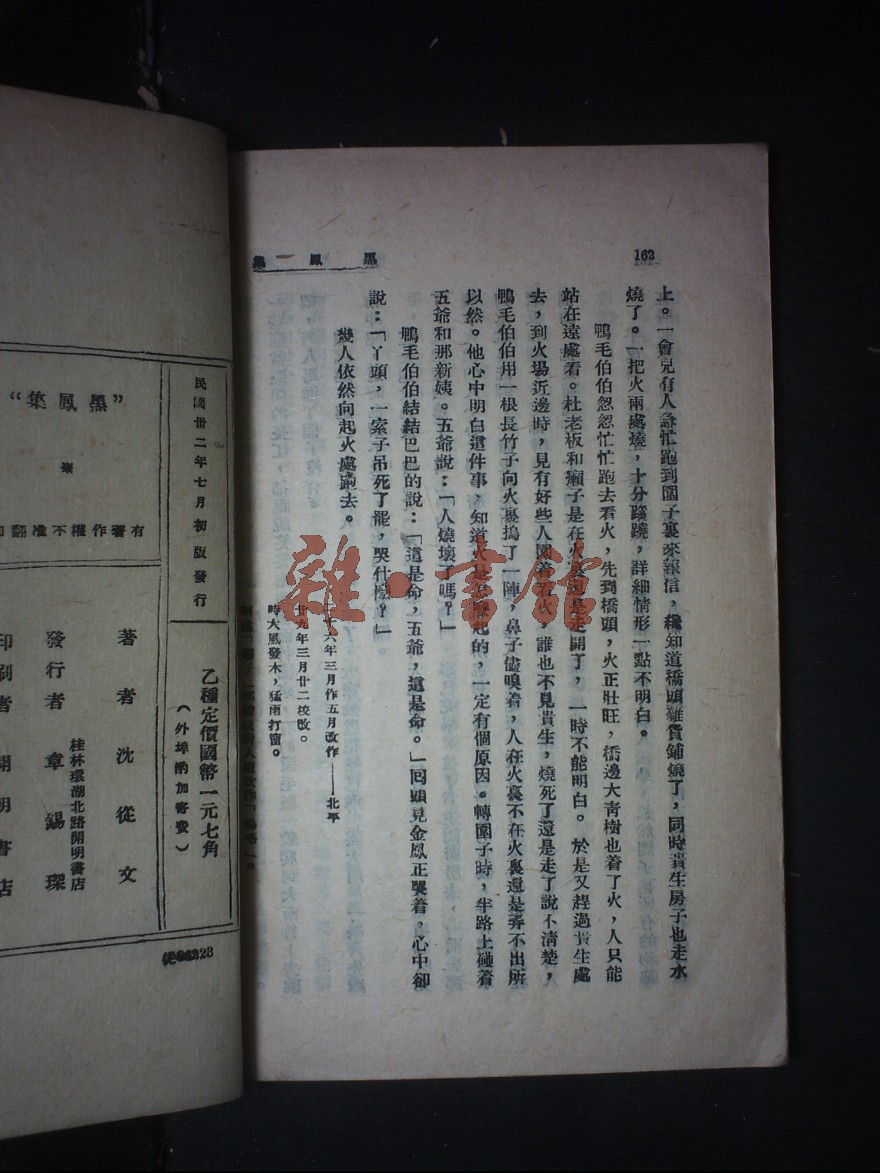 162
黑鳳集
上。一會兒有人急忙跑到圍子裏來報信，纔知道橋頭雜貨鋪燒了，同時貴生房子也走水
燒了。一把火兩處燒，十分蹊蹺，詳細情形一點不明白。
鴨毛伯伯忽忽忙忙跑去看火，先到橋頭，火正壯旺，橋邊大青樹也着了火，人只能
站在遠處看。杜老板和癩子是在火裏還是走開了，一時不能明白。於是又趕過貴生處
去，到火場近邊時，見有好些人圍着看火，誰也不見貴生，燒死了還是走了說不清楚，
鴨毛伯伯用一根長竹子向火裏搗了一陣，鼻子儘嗅着，人在火裏不在火裏還是弄不出所
以然。他心中明白這件事，知道火是怎麼起的，一定有個原因。轉圍子時，半路上碰着
五爺和那新姨。五爺說：「人燒壞了嗎？」
鴨毛伯伯結結巴巴的說：「這是命，五爺，這是命。」回頭見金鳳正哭着，心中卻
說：「丫頭，一索子吊死了罷，哭什麼？」
幾人依然向起火處跑去。
二十六年三月作五月改作——北平
廿九年三月廿二校改。
時大風發木，猛雨打窗。
雜·書館
民國卅二年七月初版發行
乙種定價國幣一元七角
（外埠酌加寄費）
著者 沈從文
桂林環湖北路開明書店
發行者 章錫琛
印刷者 開明書店
“黑鳳集”
有著作權不准翻印